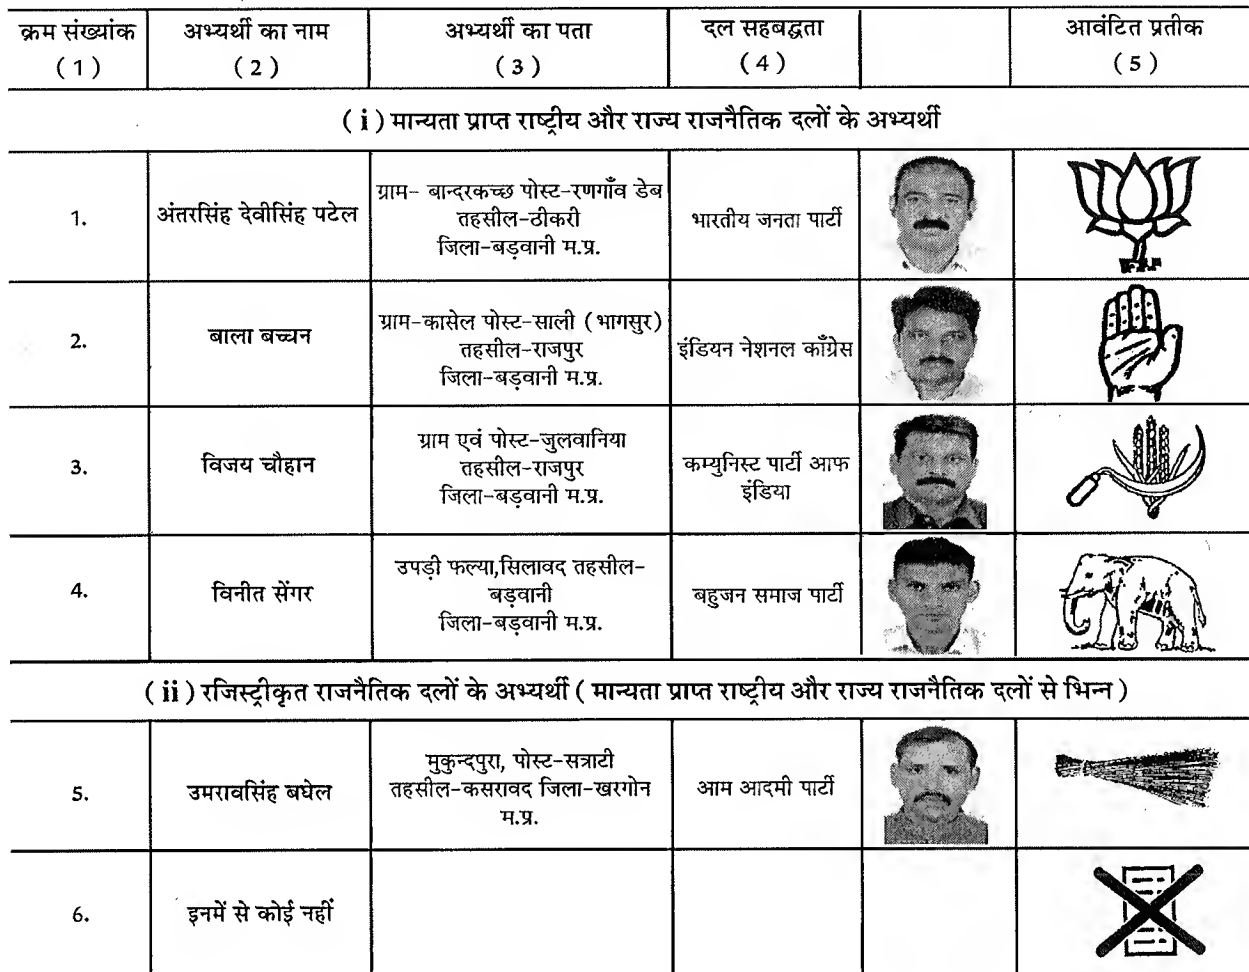 क्रम संख्यांक अभ्यर्थी का नाम अभ्यर्थी का पता दल सहबद्धता आवंटित प्रतीक
( 1 ) ( 2 ) ( 3 ) ( 4 ) ( 5 )
( i ) मान्यता प्राप्त राष्ट्रीय और राज्य राजनैतिक दलों के अभ्यर्थी
1. अंतरसिंह देवीसिंह पटेल
ग्राम- बान्दरकच्छ पोस्ट-रणगाँव डेब
तहसील-ठीकरी
जिला-बड़वानी म.प्र.
भारतीय जनता पार्टी
2. बाला बच्चन
ग्राम-कासेल पोस्ट-साली ( भागसुर)
तहसील-राजपुर
जिला-बड़वानी म.प्र.
इंडियन नेशनल काँग्रेस
3. विजय चौहान
ग्राम एवं पोस्ट-जुलवानिया
तहसील-राजपुर
जिला-बड़वानी म.प्र.
कम्युनिस्ट पार्टी आफ
इंडिया
4. विनीत सेंगर
उपड़ी फल्या,सिलावद तहसील-
बड़वानी
जिला-बड़वानी म.प्र.
बहुजन समाज पार्टी
( ii ) रजिस्ट्रीकृत राजनैतिक दलों के अभ्यर्थी ( मान्यता प्राप्त राष्ट्रीय और राज्य राजनैतिक दलों से भिन्न )
5. उमरावसिंह बघेल
मुकुन्दपुरा, पोस्ट-सत्राटी
तहसील-कसरावद जिला-खरगोन
म.प्र.
आम आदमी पार्टी
6. इनमें से कोई नहीं